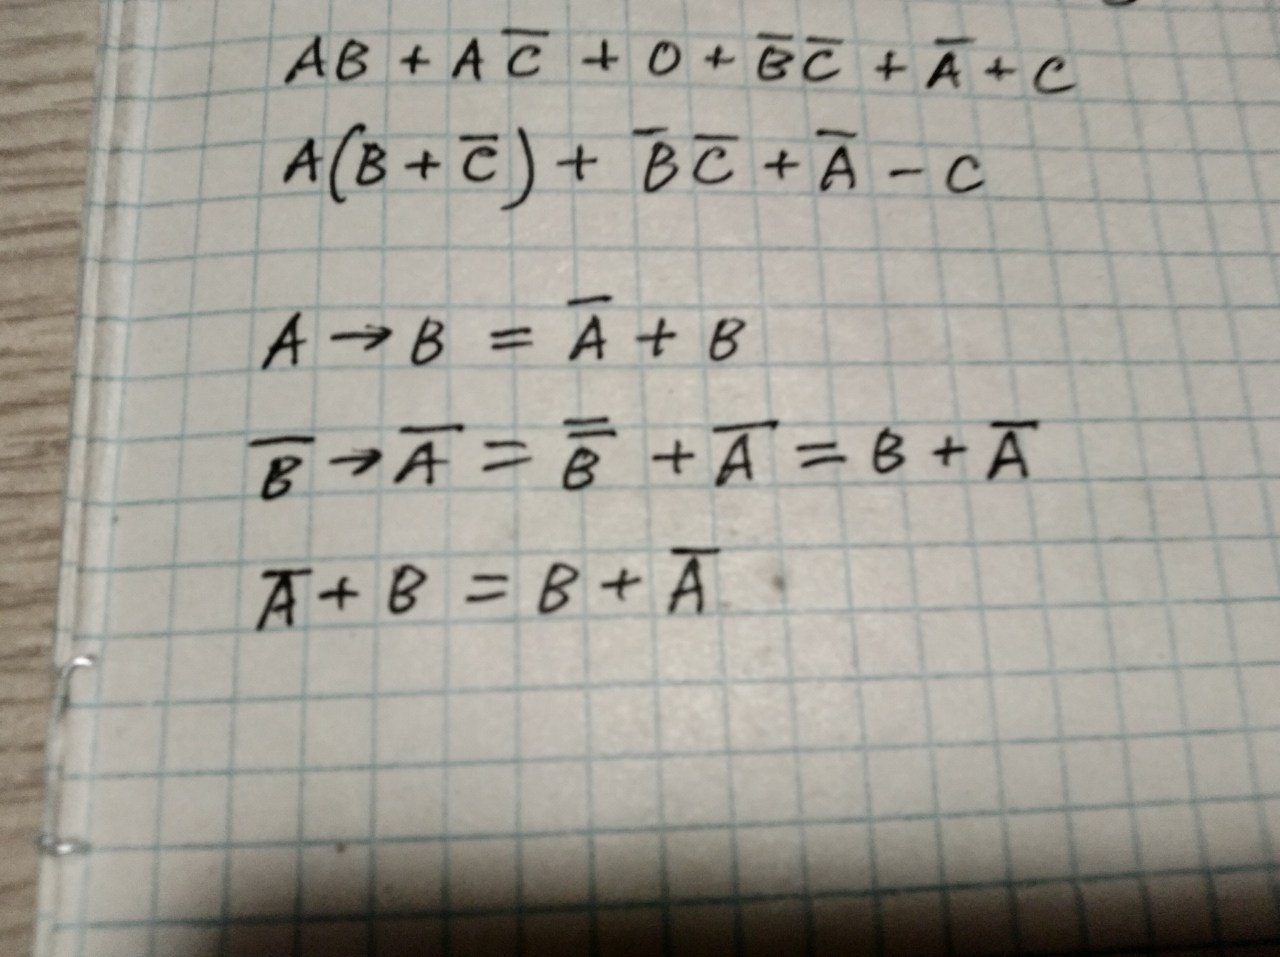 AB + AC̅ + 0 + B̅C̅ + A̅ + C
A(B + C̅) + B̅C̅ + A̅ - C
A → B = A̅ + B
B̅ → A̅ = B̿ + A̅ = B + A̅
A̅ + B = B + A̅